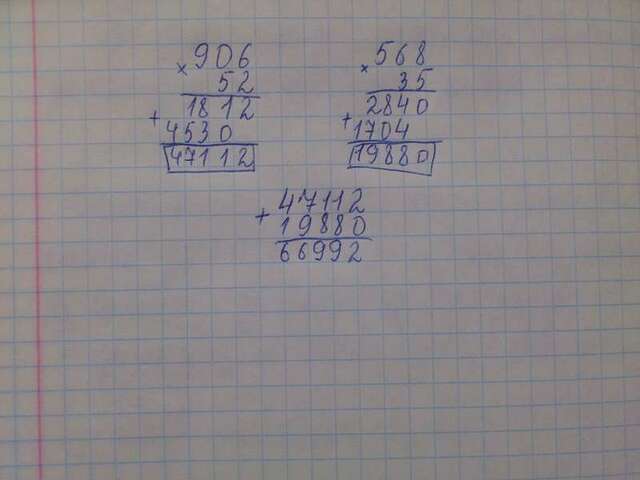 × 906
52
+ 1812
4530
47112
× 568
35
+ 2840
1704
19880
+ 47112
19880
66992